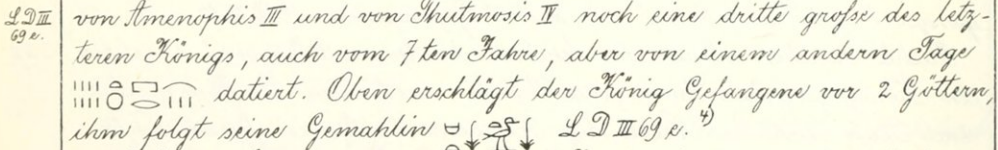 LD III
69 e.
von Amenophis III und von Thutmosis IV noch eine dritte große des letz-
teren Königs, auch vom 7ten Jahre, aber von einem andern Tage
datiert. Oben erschlägt der König Gefangene vor 2 Göttern,
ihm folgt seine Gemahlin LD III 69 e. 4)